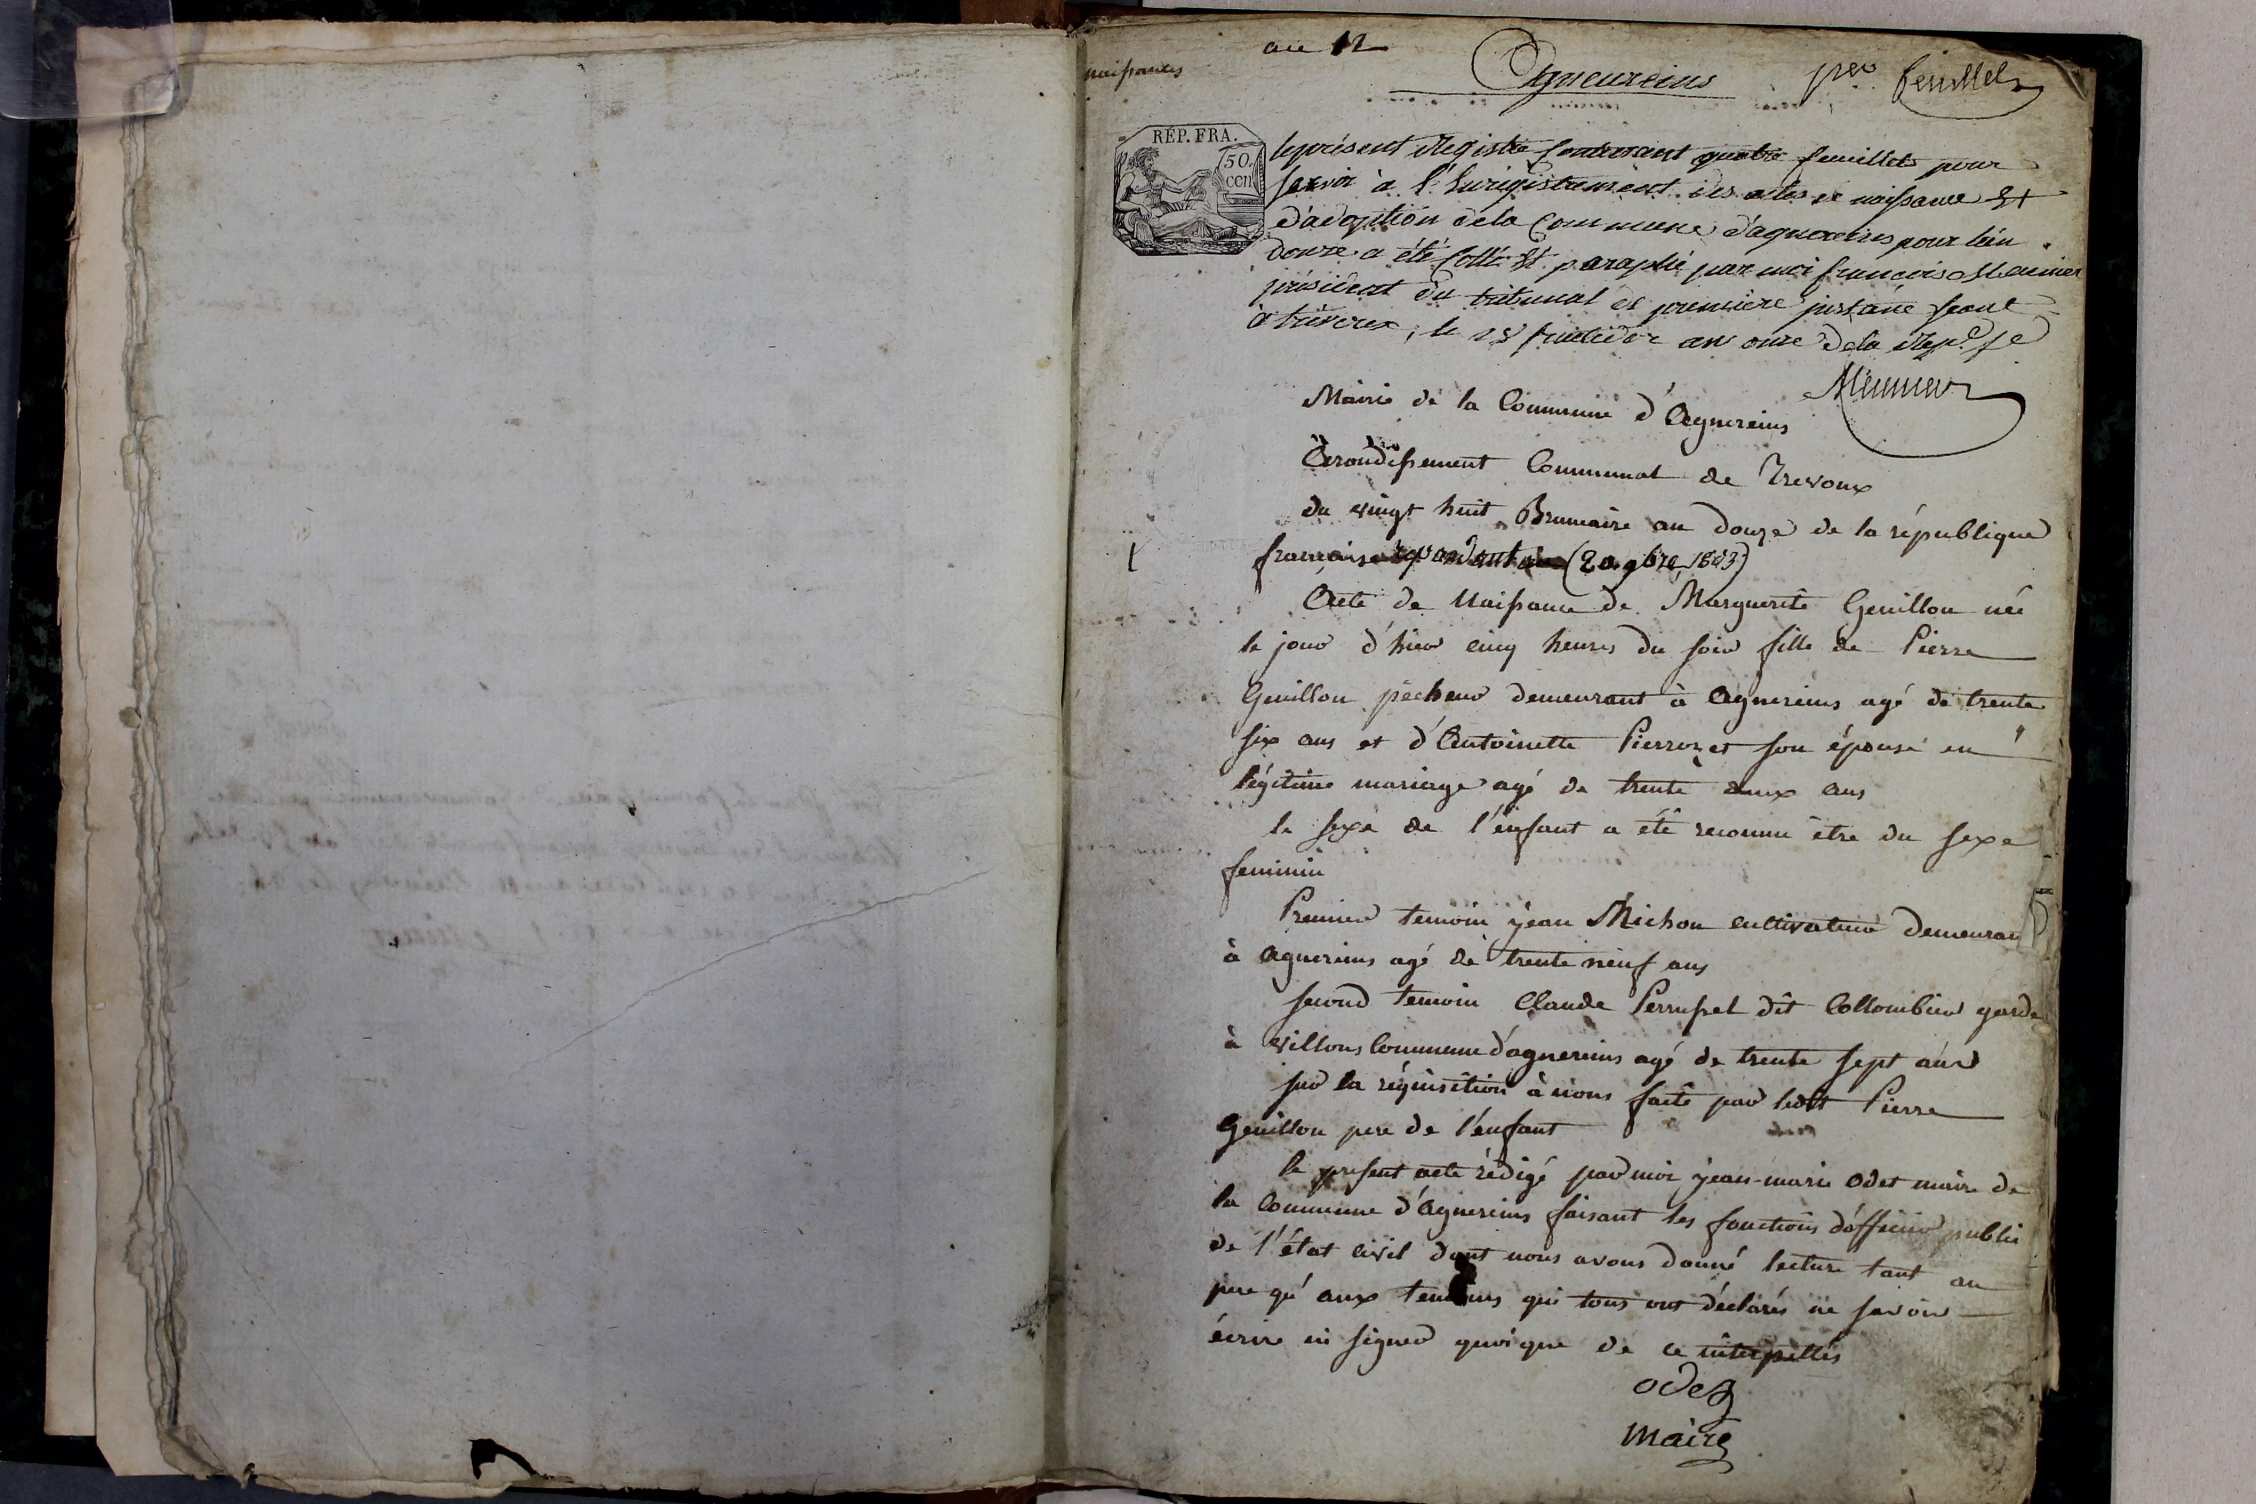 naissances
an 12
Agneureins
per feuillet
RÉP. FRA.
50.
cen
le présent Registre contenant quatre feuillets pour
servir à l'Enregistrement des actes de naissance Et
d'adoption dela Commune d'agnereins pour l'an
douze a été Cotté Et paraphé par moi françois Meunier
président du tribunal de première instance séant
à trévoux, le 25 fructidor an onze dela Rep.e fse
Meunier
Mairie de la Commune d'Agnereins
Arondissement Communal de Trevoux
du vingt huit Brumaire an douze de la république
française (20 9bre 1803)
1
Acte de Naissance de Marguerite Genillon née
le jour d'hier cinq heures du soir fille de Pierre
Genillon pêcheur demeurant à Agnereins agé de trente
six ans et d'Antoinette Pierrozet son épouse en
légitime mariage agé de trente deux ans
le sexe de l'enfant a été reconnu être du sexe
feminin
Premier temoin jean Michon cultivateur demeurant
à Agnereins agé de trente neuf ans
second temoin Claude Perrussel dit Collombier garde
à villons Commune d'agnereins agé de trente sept ans
sur la réquisition à nous faite par ledit Pierre
Genillon pere de l'enfant
le present acte rédigé par moi jean-marie odet maire de
la Commune d'Agnereins faisant les fonctions d'officier public
de l'état civil dont nous avons donné lecture tant au
pere qu'aux temoins qui tous ont déclarés ne savoir
écrire ni signer quoique de ce interpellés
odet
maire